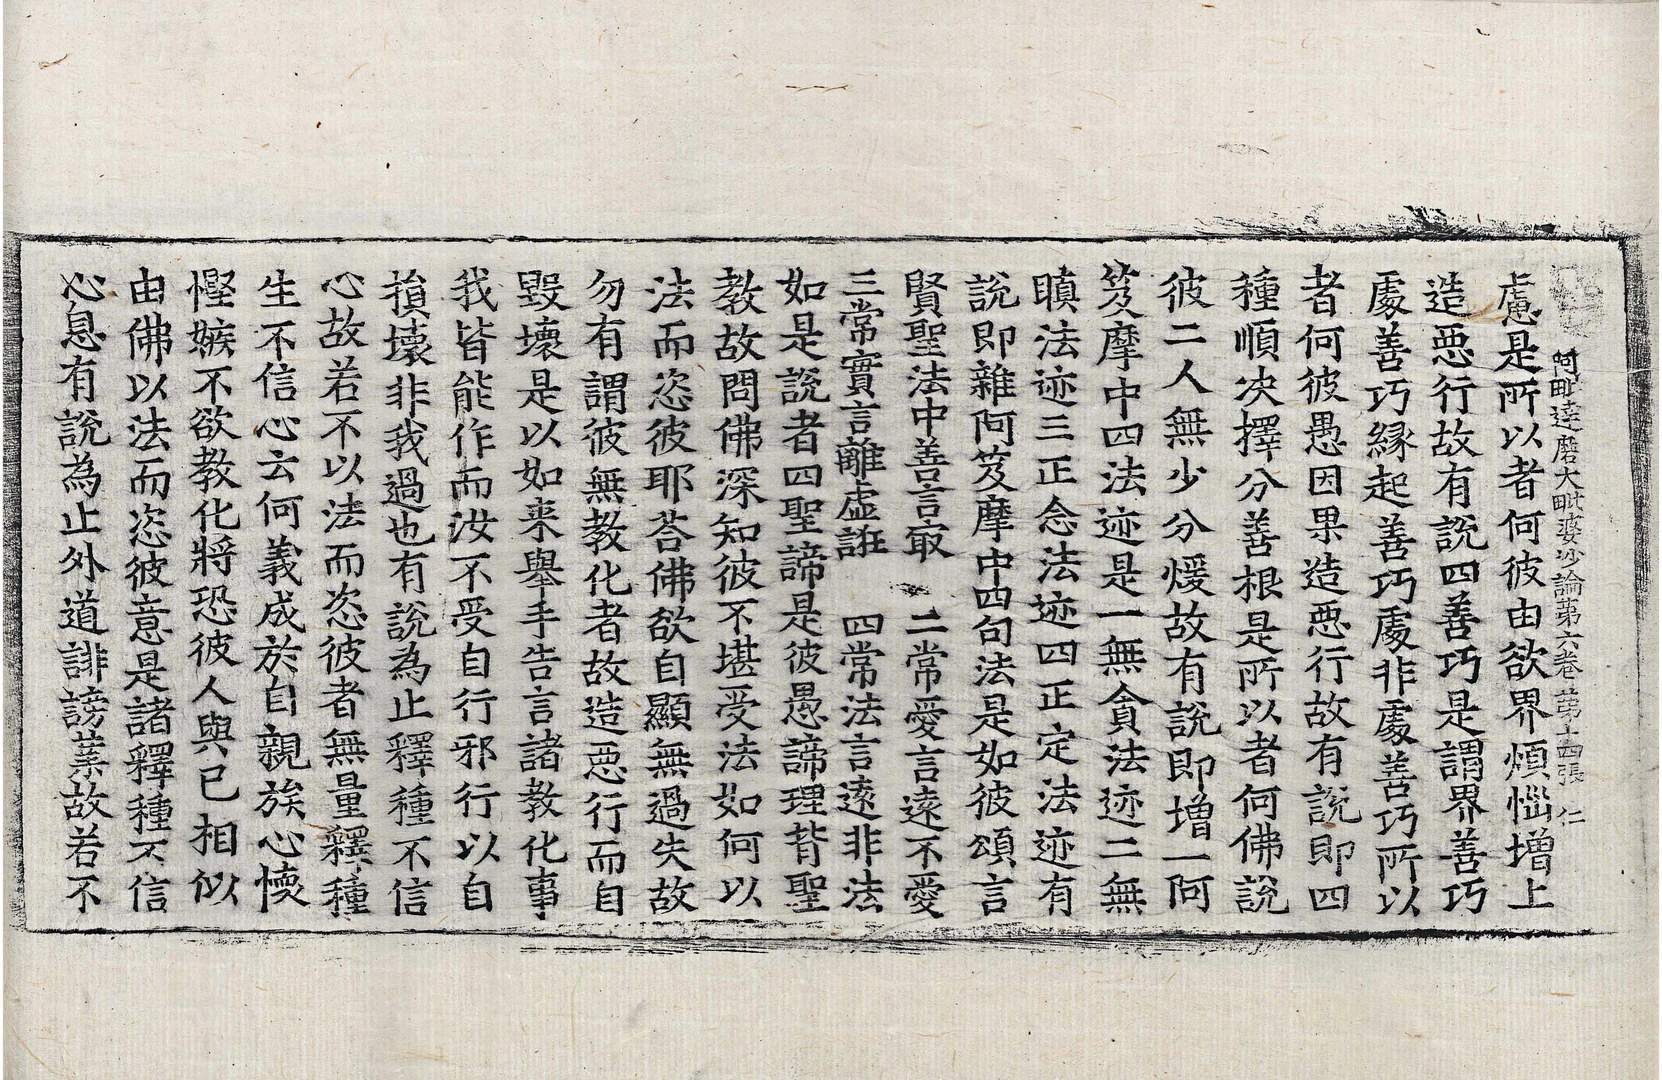 阿毗達磨大毗婆沙論第六卷 第十四張 仁
慮是所以者何彼由欲界煩惱增上
造惡行故有說四善巧是謂界善巧
處善巧緣起善巧處非處善巧所以
者何彼愚因果造惡行故有說即四
種順决擇分善根是所以者何佛說
彼二人無少分煖故有說即增一阿
笈摩中四法迹是一無貪法迹二無
瞋法迹三正念法迹四正定法迹有
說即雜阿笈摩中四句法是如彼頌言
賢聖法中善言冣 二常愛言遠不愛
三常實言離虛誑 四常法言遠非法
如是說者四聖諦是彼愚諦理背聖
教故問佛深知彼不堪受法如何以
法而恣彼耶荅佛欲自顯無過失故
勿有謂彼無教化者故造惡行而自
毀壞是以如来舉手告言諸教化事
我皆能作而汝不受自行邪行以自
損壞非我過也有說為止釋種不信
心故若不以法而恣彼者無量釋種
生不信心云何義成於自親族心懷
慳嫉不欲教化將恐彼人與已相似
由佛以法而恣彼意是諸釋種不信
心息有說為止外道誹謗業故若不